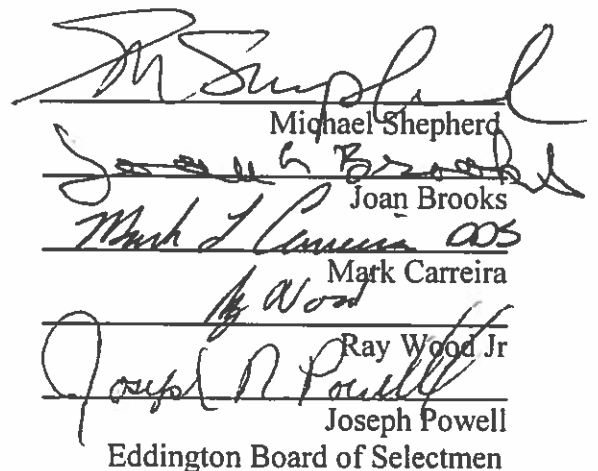 M Shepherd
Michael Shepherd
Joan Brooks
Joan Brooks
Mark L Carreira DDS
Mark Carreira
Ray Wood
Ray Wood Jr
Joseph R Powell
Joseph Powell
Eddington Board of Selectmen